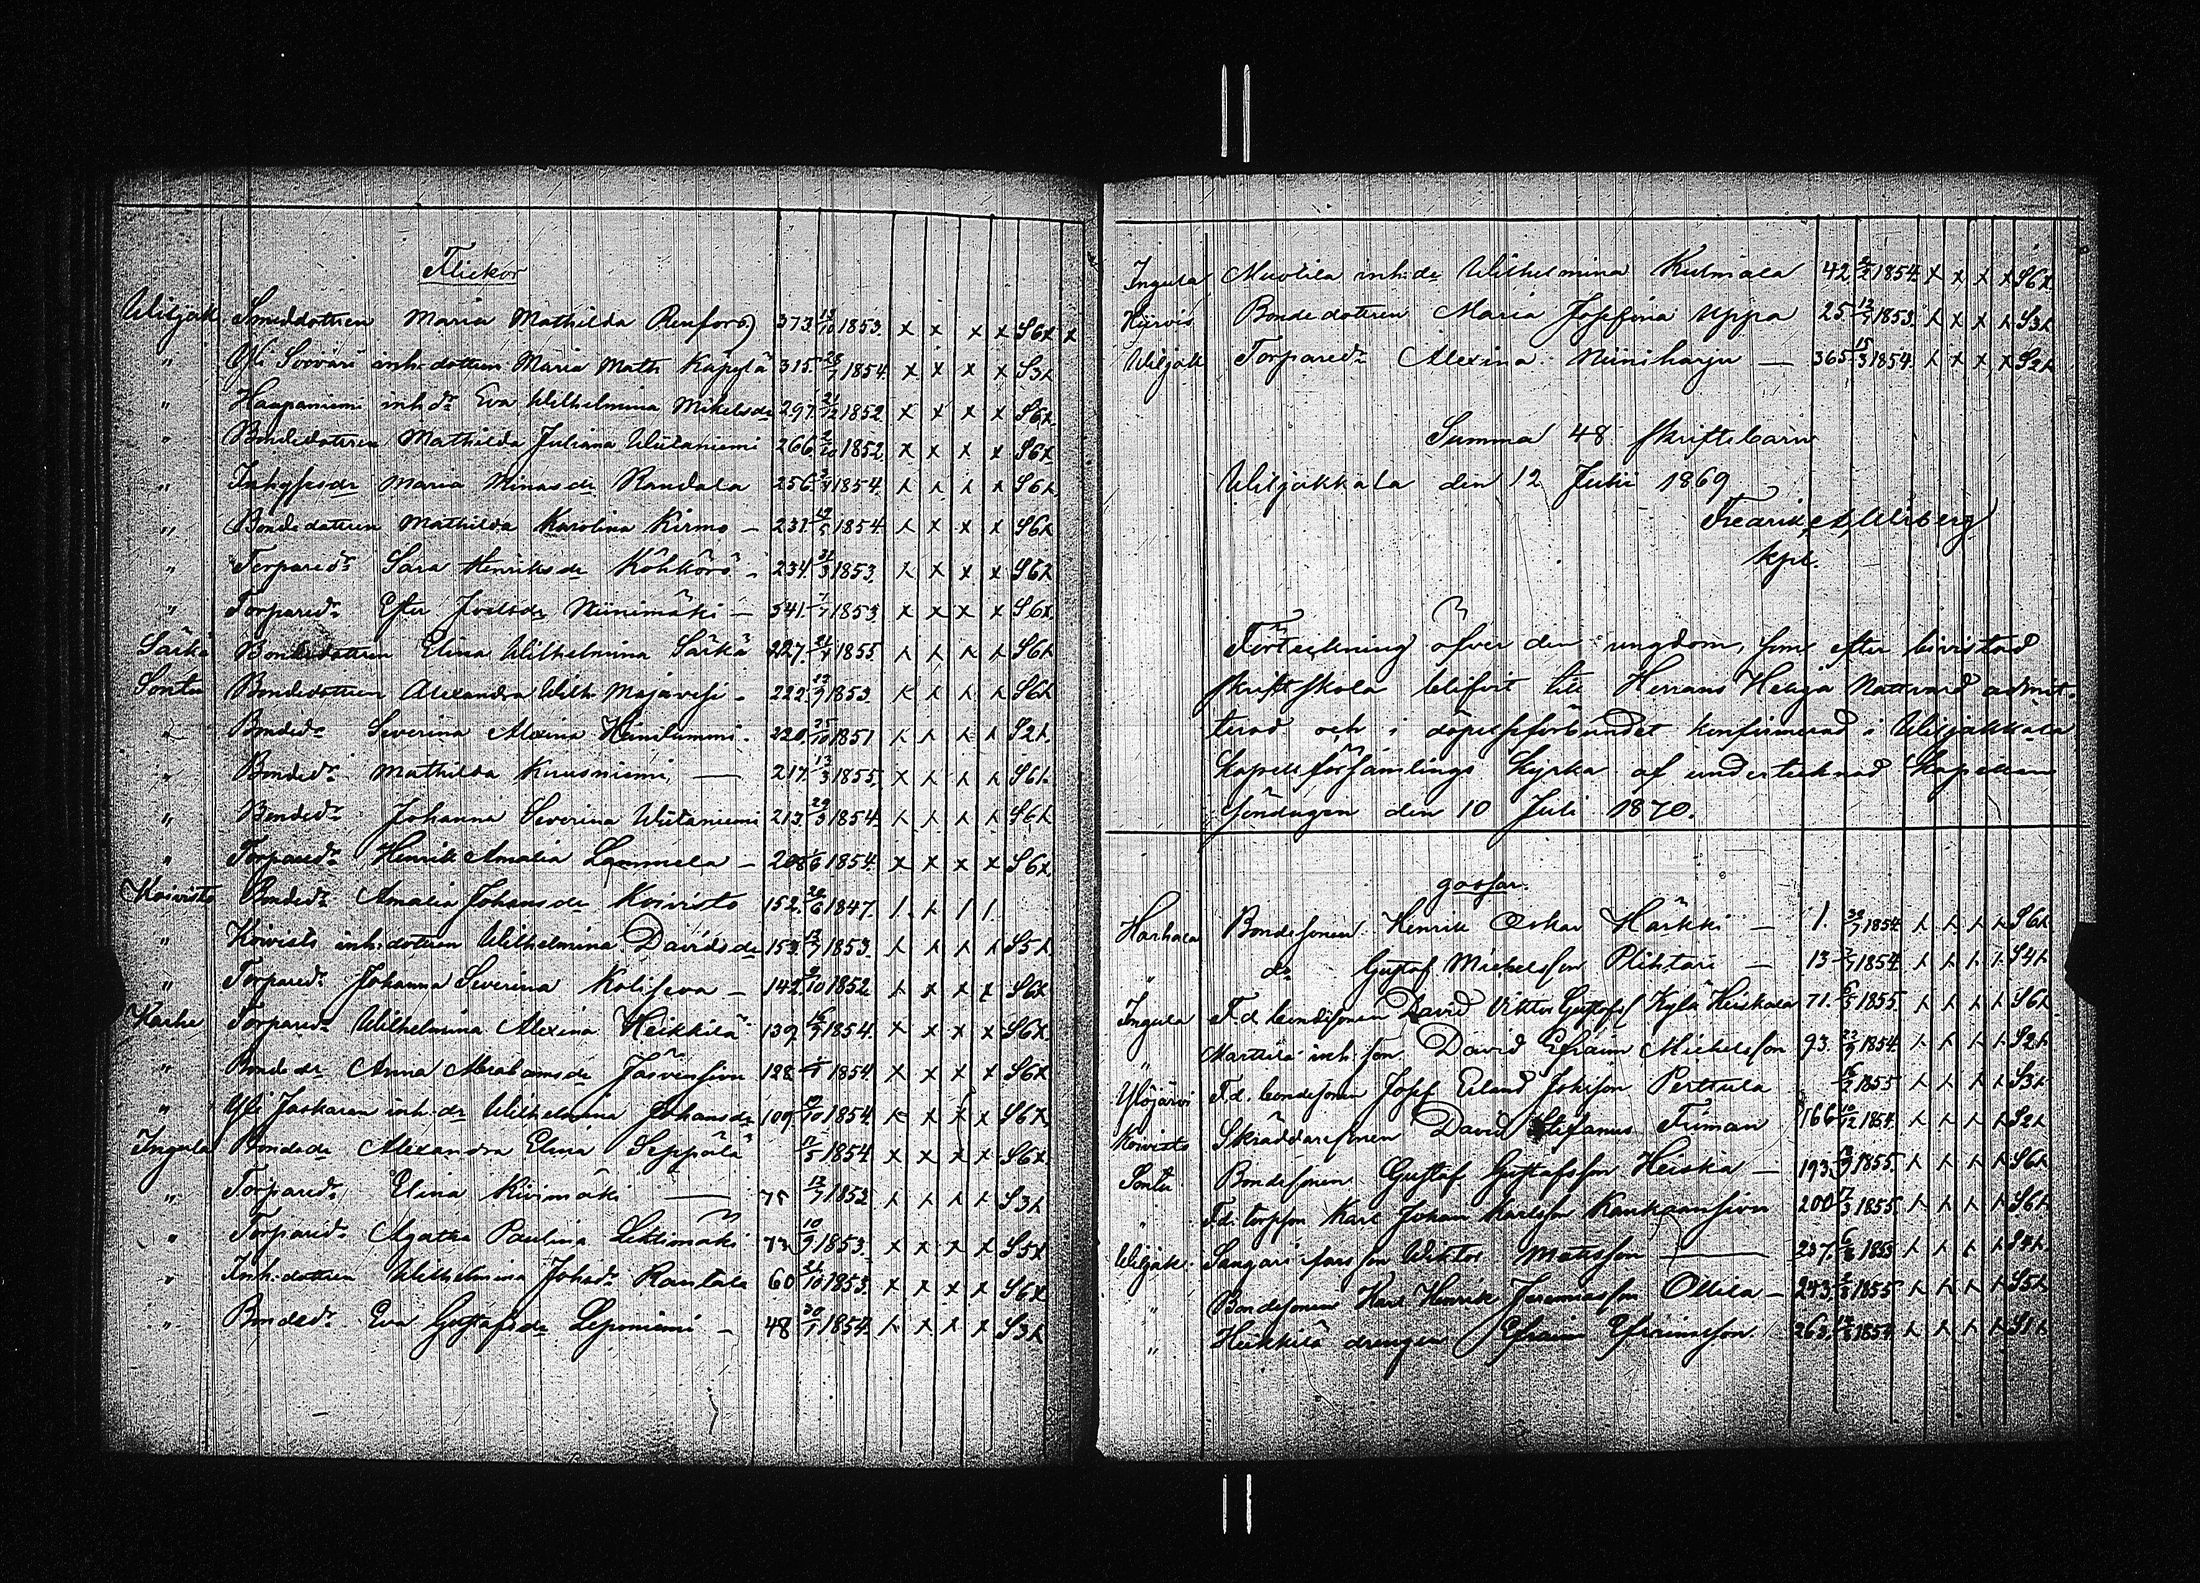 Flickor
Wiljak. Smeddottren Maria Mathilda Renfors 373. 13/10 1853. x x x x S6x x
" Yli Sorvari inh. dottren Maria Math. Käpylä 315. 28/7 1854. x x x x S3x
" Haapaniemi inh. dr Eva Wilhelmina Mikelsdr 297. 21/12 1852 x x x x S6x.
" Bondedottren Mathilda Juliana Wiitaniemi 266 2/10 1852 x x x x S6x
" Inhysesdr Maria Minasdr Randala 256. 1854. x x x x S6x
" Bondedottren Mathilda Karolina Kirmo – 231. 1854 x x x x S6x
" Torparedr Sara Henriksdr Köhkörö – 234. 31/3 1853. x x x x S6x
" Torparedr Ester Joelsdr Niinimäki – 341. 1853 x x x x S6x.
Särki Bondedottren Elina Wilhelmina Särki 227. 1855. x x x x S6x
Sontu Bondedottren Alexandra Wilh. Majavesi – 222. 1853. x x x x S6x
" Bondedr Severina Alxina Heinilammi – 220. 25/10 1851 x x x x S2x.
" Bondedr Mathilda Kuusniemi, — 217. 13/3 1855. x x x x S6x.
" Bondedr Johanna Severina Wiitaniemi 213. 29/3 1854. x x x x S6x
" Torparedr Henrik Amalia Lammela – 208 1854. x x x x S6x.
Koivisto Bondedr Amalia Johansdr Koivisto 152. 1847. / x / /
" Koivisto inh. dottren Wilhelmina Davidsdr 153. 1853. x x x x S5x.
" Torparedr Johanna Severina Koliseva – 142. 1852 x x x x S6x
Karhe Torparedr Wilhelmina Alexina Heikkilä 139. 1854. x x x x S6x.
" Bondedr Anna Abrahamsdr Järvensivu 128 1854. x x x x S6x
" Yli Jaskaran inh. dr Wilhelmina Johansdr 109. 1854. x x x x S6x.
Ingula Bondedr Alexandra Elina Seppälä 1854 x x x x S6x.
" Torparedr Elina Kivimäki — 75 1852 x x x x S3x
" Torparedr Agatha Paulina Lehtimäki 73 10/9 1853. x x x x S5x
" Inh. dottren Wilhelmina Johadr Rantala 60 1853. x x x x S6x
" Bondedr Eva Gustafsdr Leponiemi – 48 30/1 1854. x x x x S3x
Ingula Muotila inh. dr Wilhelmina Kulmala 42 1854. x x x x S6x.
Kyrvis Bondedottren Maria Josefina Uppa 25 1853. x x x x S3x
Wiljak Torparedr Alexina Niiniharju — 365. 15/3 1854. x x x x S2x
Summa 48 skriftsbarn
Wiljakkala den 12 Julii 1869
Fredrik
kpl.
Förteckning öfver den ungdom, som efter bivistad
skriftskola blifvit till Herrans Heliga Nattvard admit-
terad och i döpelseförbundet konfirmerad i Wiljakkala
Kapellförsamlings Kyrka af undertecknad Kapellan
Söndagen den 10 Juli 1870.
gossar.
Harhala Bondesonen Henrik Oskar Härkki — 1. 1854 x x x x S6x
" do Gustaf Michelsson Plihtari — 13 1854. x x x x S4x
Ingula F.d. bondesonen David Viktor Gustafs. Kylä Heiskala 71. 6/5 1855. x x x x S6x
" Marttila inh. son David Efraim Michelsson 93. 22/9 1854 x x x x S2x
Ylöjärvi F.d. bondesonen Josef Erland Perttula 1855 x x x x S3x
Koivisto Skräddaresonen David Stefanus Friman 166 10/12 1854. x x x x S2x
Sontu Bondesonen Gustaf Gustafsson Heiska — 193. 1855. x x x x S6x
" F.d. torpson Karl Johan Karlsson Kankaansivu 200 17/3 1855. x x x x S6x
Wiljak. Sangari Wiktor Matsson — 237. 1855 x x x x S4x.
" Bondesonen Karl Henrik Jeremiasson Ollila – 243. 1855 x x x x S5x
" Heikkilä drengen Efraim Efraimsson 263. 1854 x x x x S1x